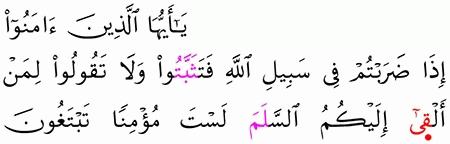 يَٰٓأَيُّهَا ٱلَّذِينَ ءَامَنُوٓا۟
إِذَا ضَرَبْتُمْ فِى سَبِيلِ ٱللَّهِ فَتَثَبَّتُوا۟ وَلَا تَقُولُوا۟ لِمَنْ
أَلْقَىٰٓ إِلَيْكُمُ ٱلسَّلَمَ لَسْتَ مُؤْمِنًا تَبْتَغُونَ